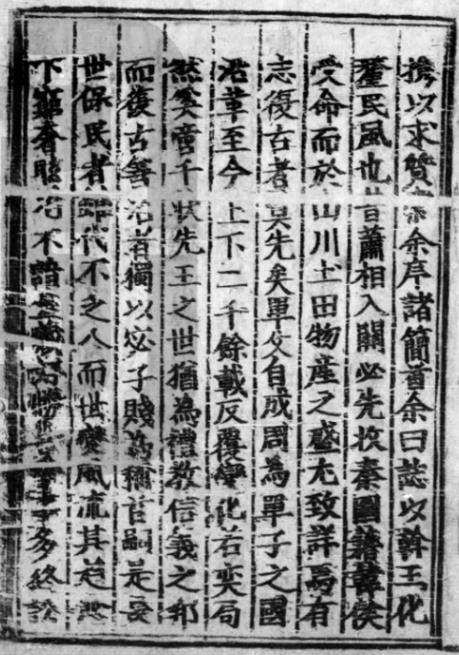 擔以求贊余序諸簡首余曰誌以幹王化
釐民風也昔蕭相入關必先收秦圖籍韓侯
受命而於山川土田物産之盛尤致詳焉有
志復古者莫先矣單父自成周為單子之國
沿革至今上下二千餘載反覆變化若奕局
然奚啻千狀先王之世猶為禮教信義之邦
而復古善治者獨以宓子賤為稱首嗣是妥
世保民者雖代不乏人而世變風流其趋愈
下竆奢不多終